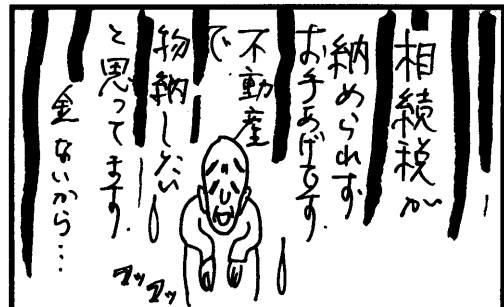 相続税が
納められず
お手あげです.
不動産
で
物納したい
と思ってます.
金ないから…
アッアッ